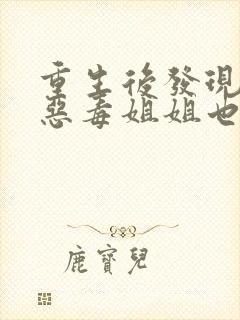 重生後發現
惡毒姐姐也
鹿寶兒